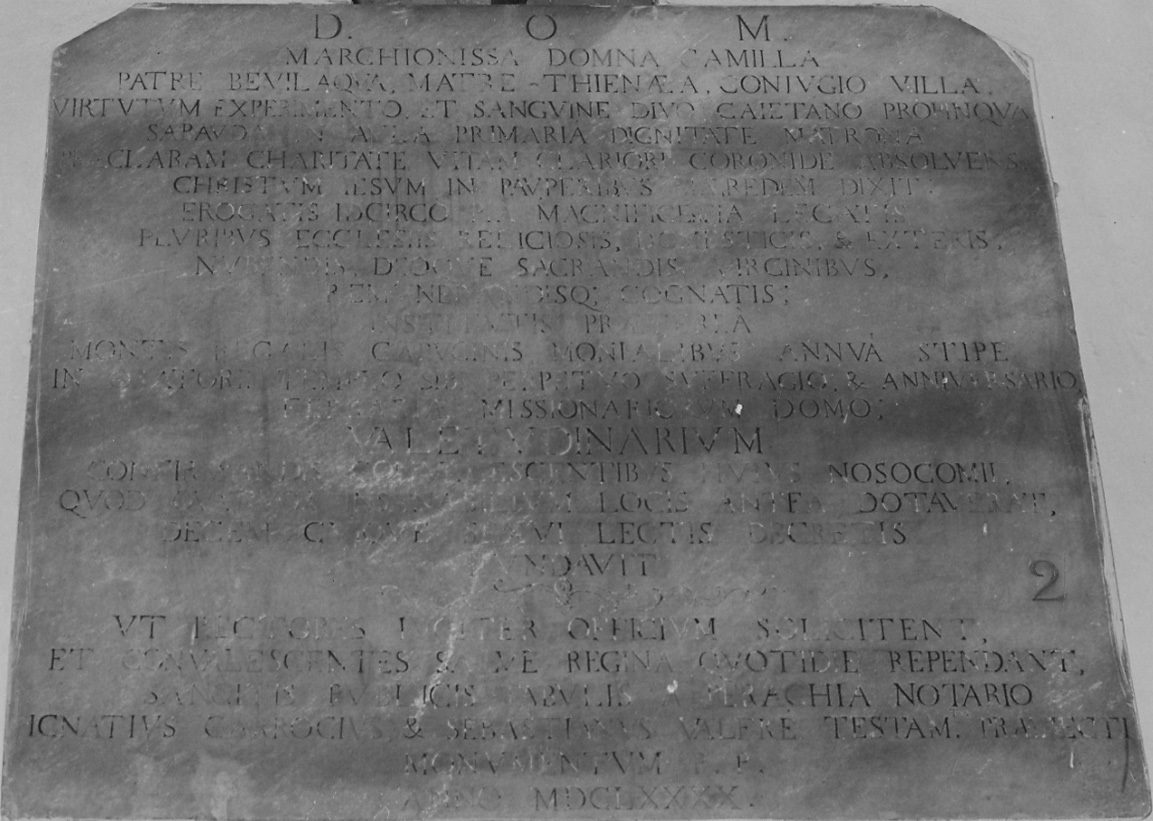 D. O. M.
MARCHIONISSA DOMNA CAMILLA
PATRE BEVILAQVA, MATRE THIENÆA, CONIVGIO VILLA,
VIRTVTVM EXPERIMENTO, ET SANGVINE DIVO CAIETANO PROPINQVA
IN AVLA PRIMARIA DIGNITATE MATRONA
PRÆCLARAM CHARITATE VITAM CLARIORI CORONIDE ABSOLVENS
CHRISTVM IESVM IN PAVPERIBVS HÆREDEM DIXIT.
EROGATIS IDCIRCO PIA MAGNIFICENTIA LEGATIS
PLVRIBVS ECCLESIIS RELIGIOSIS, DOMESTICIS, & EXTERIS,
NVBENDIS, DEOQVE SACRANDIS VIRGINIBVS,
COGNATIS;
PRÆTEREA
MONTIS REGALIS CAPVCINIS MONIALIBVS ANNVA STIPE
IN SIBI PERPETVO SVFFRAGIO, & ANNIVERSARIO,
MISSIONARIORVM DOMO;
VALETVDINARIVM
CONVALESCENTIBVS HVIVS NOSOCOMII,
QVOD LOCIS ANTEA DOTAVERAT,
DECEM LECTIS DECRETIS
FVNDAVIT
2
VT RECTORES IVGITER OFFICIVM SOLICITENT,
ET CONVALESCENTES SALVE REGINA QVOTIDIE REPENDANT,
SANCITIS PVBLICIS TABVLIS NOTARIO
IGNATIVS CARROCIVS, & SEBASTIANVS VALFRE TESTAM. PRÆFECTI
MONVMENTVM P. P.
ANNO MDCLXXXX.